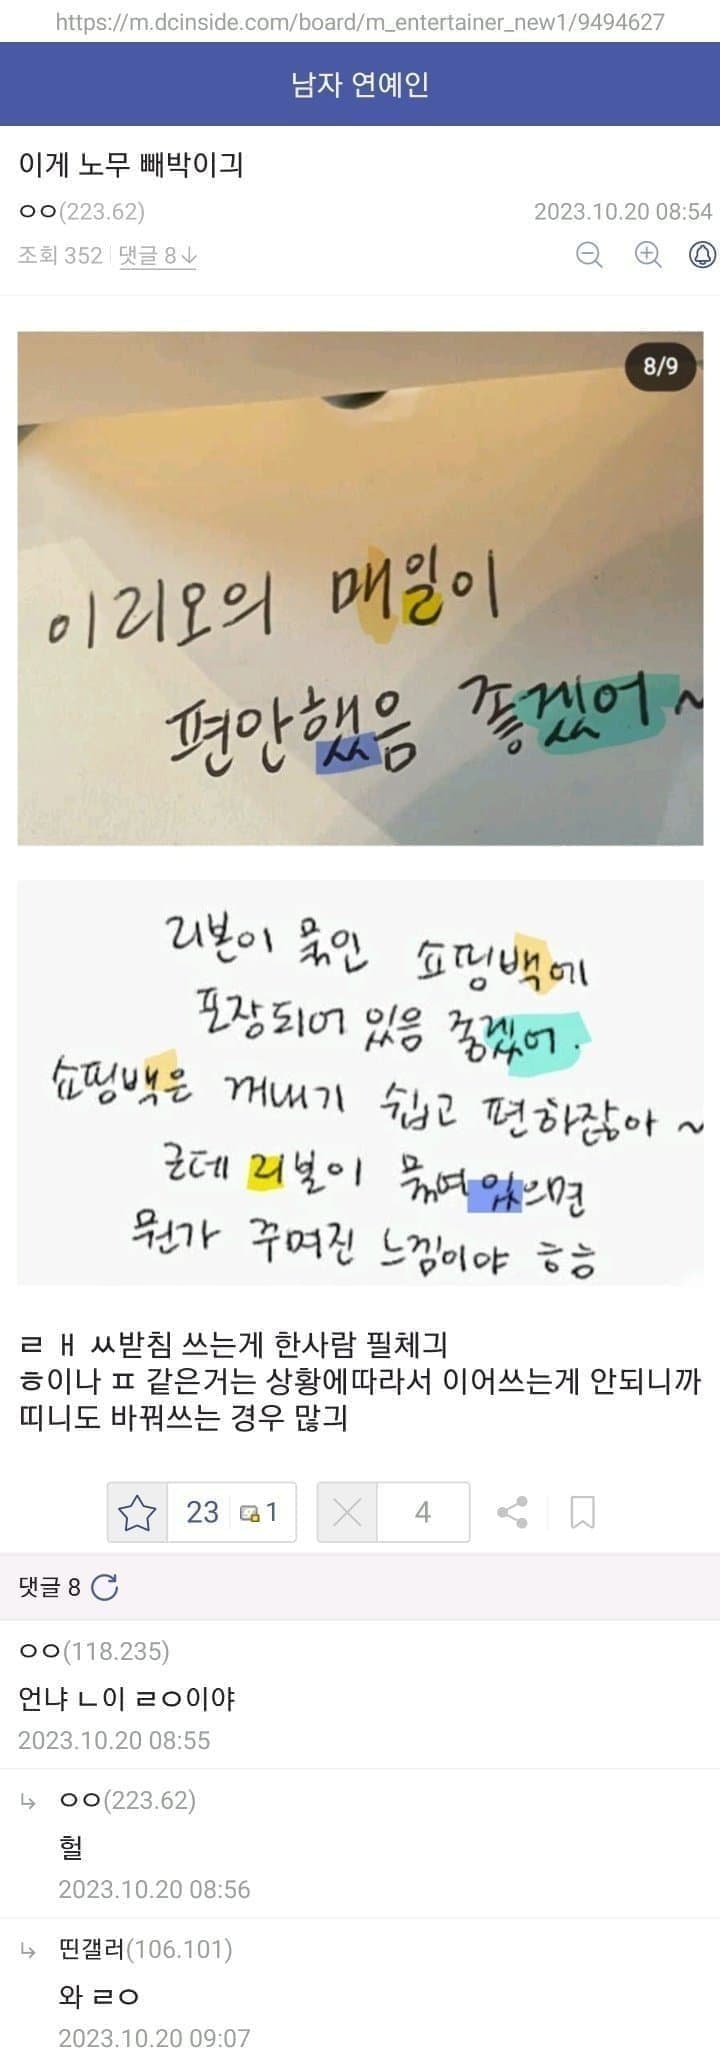 https://m.dcinside.com/board/m_entertainer_new1/9494627
남자 연예인
이게 노무 빼박이긔
ㅇㅇ(223.62)
2023.10.20 08:54
조회 352 댓글 8↓
8/9
이리오의 매일이
편안했음 좋겠어~
리본이 묶인 쇼핑백에
포장되어 있음 좋겠어.
쇼핑백은 꺼내기 쉽고 편하잖아~
근데 리본이 묶여있으면
뭔가 꾸며진 느낌이야 ㅎㅎ
ㄹ ㅐ ㅆ받침 쓰는게 한사람 필체긔
ㅎ이나 ㅍ 같은거는 상황에따라서 이어쓰는게 안되니까
띠니도 바꿔쓰는 경우 많긔
23 1 4
댓글 8
ㅇㅇ(118.235)
언냐 ㄴ이 ㄹㅇ이야
2023.10.20 08:55
ㅇㅇ(223.62)
헐
2023.10.20 08:56
띤갤러(106.101)
와 ㄹㅇ
2023.10.20 09:07